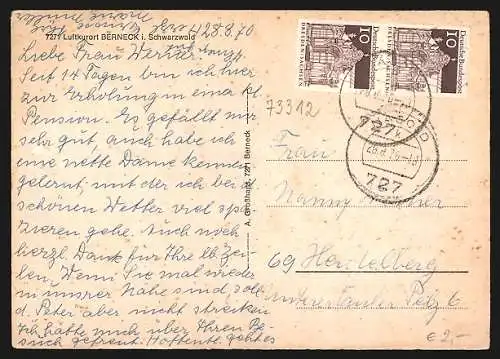 7271 Luftkurort BERNECK i. Schwarzwald
28.8.70
Liebe Frau Werner!
Seit 14 Tagen bin ich hier
zur Erholung in einer kl.
Pension. Es gefällt mir
sehr gut, auch habe ich
eine nette Dame kennen
gelernt, mit der ich bei d.
schönen Wetter viel spa-
zieren gehe. Auch noch
herzl. Dank für Ihre lb. Zei-
len. Wenn Sie mal wieder
in unsrer Nähe sind, soll
d. Peter aber nicht streiken.
Ich hätte mich über Ihren Be-
such gefreut. Hoffentl. geht es
A. Großhans, 7271 Berneck
10 Deutsche Bundespost
DRESDEN/SACHSEN
10 Deutsche Bundespost
DRESDEN/SACHSEN
727
727
73312
Frau
Nanny Werner
69 Heidelberg
€ 2,-